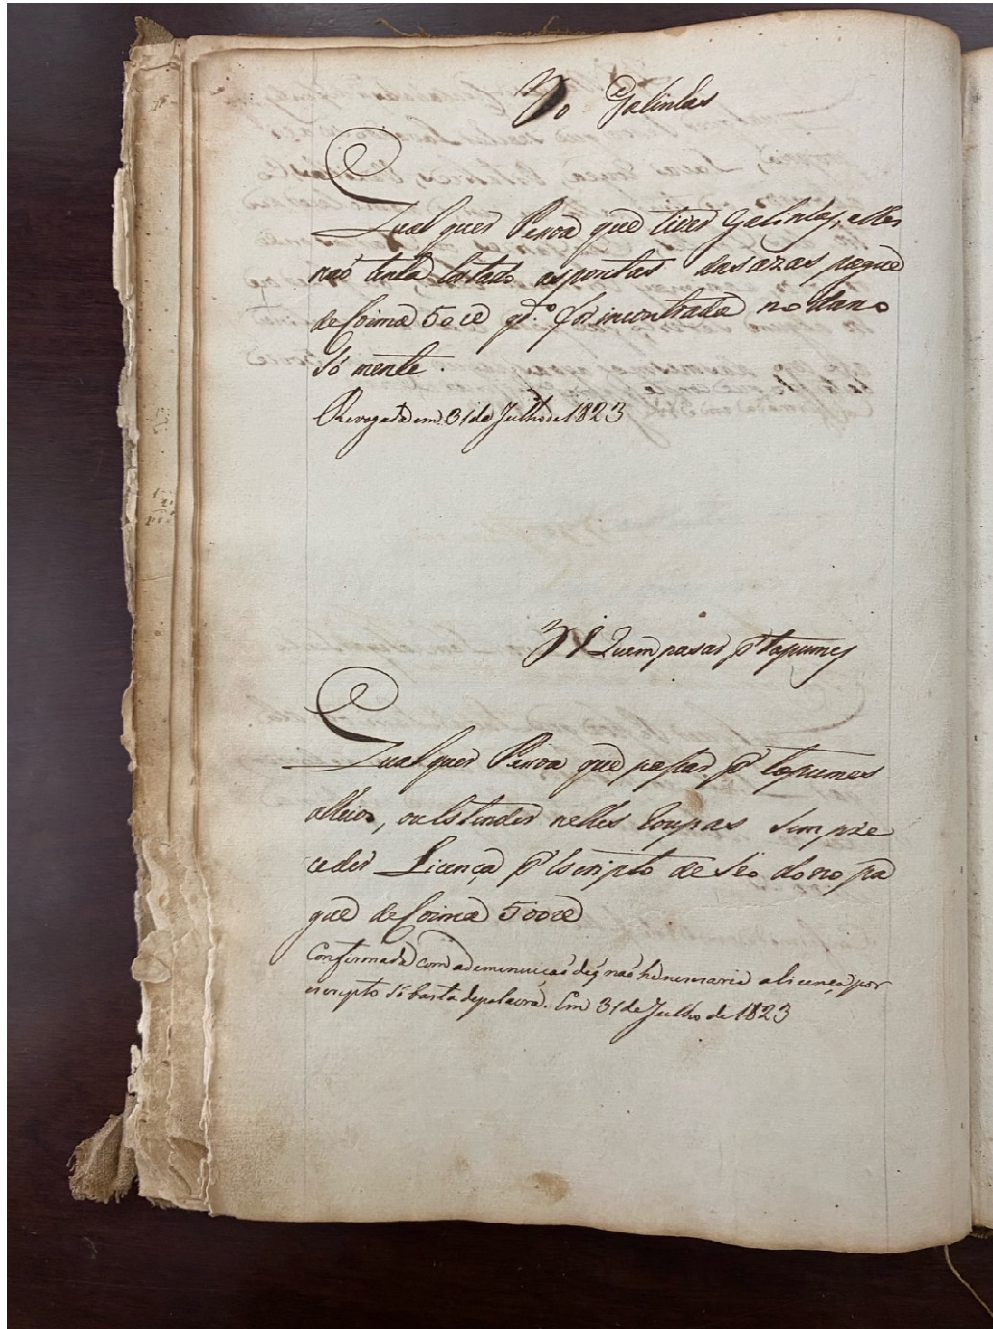 30 Galinhas
Qual quer Pesoa que tiver Galinhas, e lhes
não tenha Cortado as pontas das azas pague
de Coima 50 rẽ q.do for incontrada no dano
só mente.
Revogada em 31 de Julho de 1823
31 Quem pasar p.r tapumes
Qual quer Pesoa que pasar p.r tapumes
alheios, ou Estender nelles Roupas sem pre
ceder Licença p.r Escripto de seo dono pa
gue de Coima 500 rẽ
Confirmada com a deminuiçaõ de q naõ hé nesesaria a licença por
escripto só basta de palavra. Em 31 de Julho de 1823